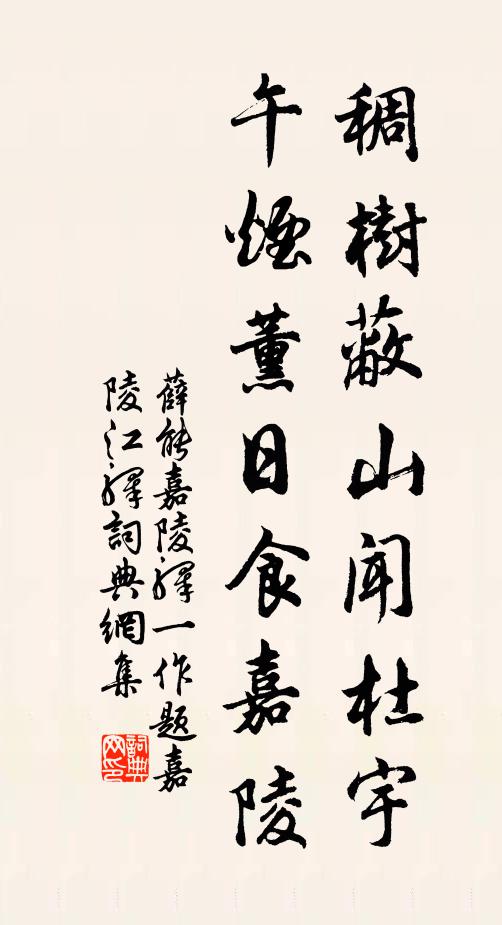 稠樹蔽山聞杜宇
午煙薰日食嘉陵
薛能嘉陵驛一作題嘉
陵江驛詞典網集
詞典網印